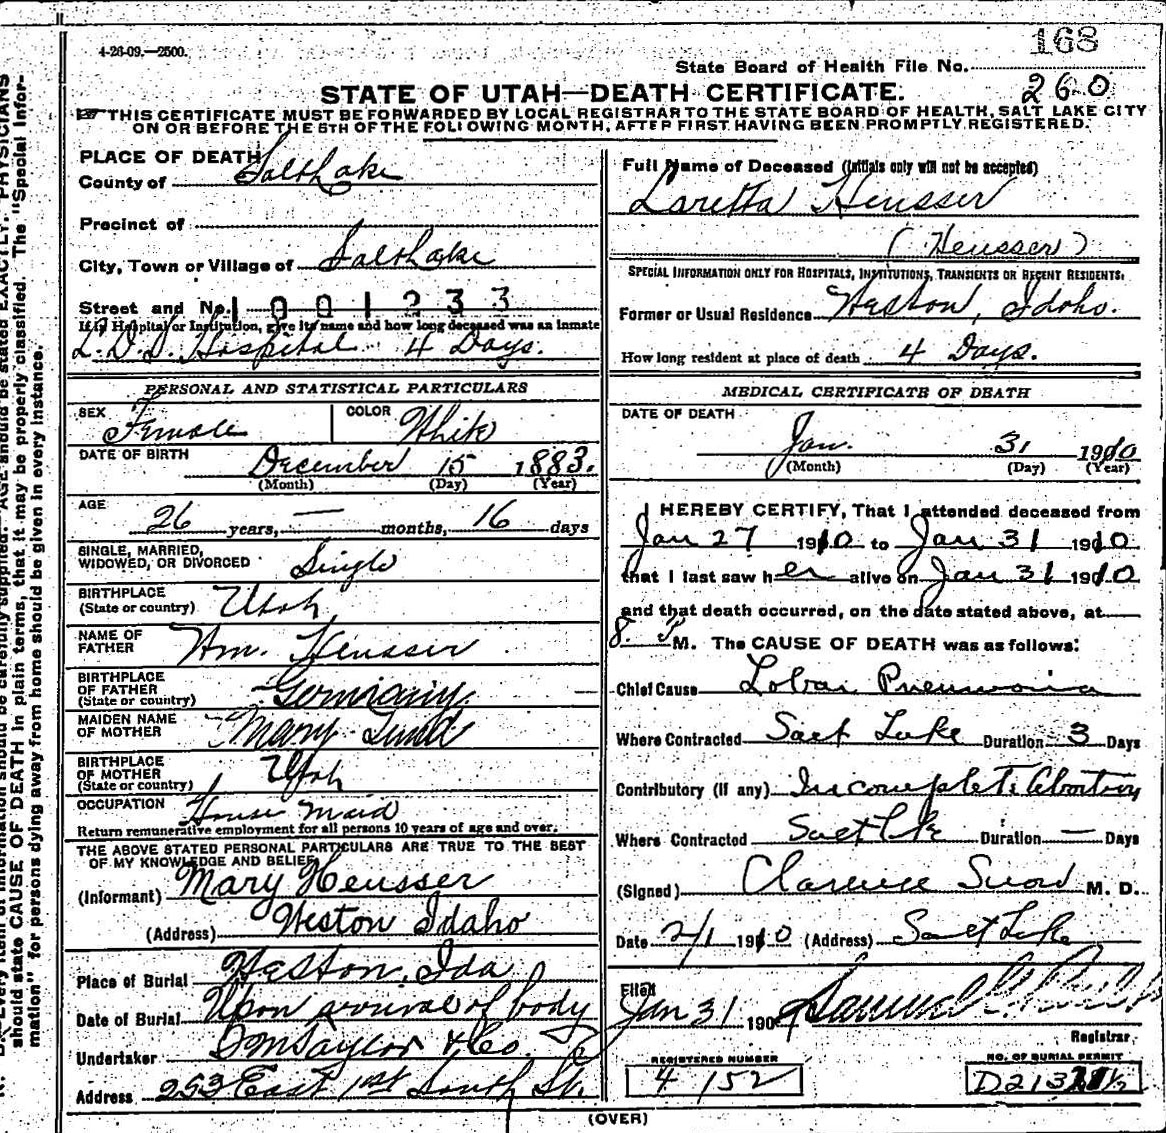 4-26-09.—2500.
168
State Board of Health File No.
260
STATE OF UTAH—DEATH CERTIFICATE.
THIS CERTIFICATE MUST BE FORWARDED BY LOCAL REGISTRAR TO THE STATE BOARD OF HEALTH, SALT LAKE CITY
ON OR BEFORE THE 5TH OF THE FOLLOWING MONTH, AFTER FIRST HAVING BEEN PROMPTLY REGISTERED.
PLACE OF DEATH
County of Salt Lake
Precinct of
City, Town or Village of Salt Lake
Street and No. 1 0 0 1 2 3 3
If in Hospital or Institution, give its name and how long deceased was an inmate
L.D.S. Hospital 4 Days.
PERSONAL AND STATISTICAL PARTICULARS
SEX Female
COLOR White
DATE OF BIRTH December 15 1883.
(Month) (Day) (Year)
AGE 26 years, — months, 16 days
SINGLE, MARRIED,
WIDOWED, OR DIVORCED Single
BIRTHPLACE
(State or country) Utah
NAME OF
FATHER Wm. Heusser
BIRTHPLACE
OF FATHER
(State or country) Germany
MAIDEN NAME
OF MOTHER Mary Lund
BIRTHPLACE
OF MOTHER
(State or country) Utah
OCCUPATION House Maid
Return remunerative employment for all persons 10 years of age and over.
THE ABOVE STATED PERSONAL PARTICULARS ARE TRUE TO THE BEST
OF MY KNOWLEDGE AND BELIEF
(Informant) Mary Heusser
(Address) Weston Idaho
Place of Burial Weston, Ida
Date of Burial Upon arrival of body
Undertaker Taylor & Co.
Address 253 East 1st South St.
Full Name of Deceased (Initials only will not be accepted)
Loretta Heusser
(Heusser)
SPECIAL INFORMATION ONLY FOR HOSPITALS, INSTITUTIONS, TRANSIENTS OR RECENT RESIDENTS.
Former or Usual Residence Weston, Idaho.
How long resident at place of death 4 Days.
MEDICAL CERTIFICATE OF DEATH
DATE OF DEATH
Jan. 31 1910
(Month) (Day) (Year)
I HEREBY CERTIFY, That I attended deceased from
Jan 27 1910 to Jan 31 1910
that I last saw her alive on Jan 31 1910
and that death occurred, on the date stated above, at
8. P M. The CAUSE OF DEATH was as follows:
Chief Cause Lobar Pneumonia
Where Contracted Salt Lake Duration 3 Days
Contributory (if any) Incomplete Abortion
Where Contracted Salt Lake Duration — Days
(Signed) Clarence Snow M. D.
Date 2/1 1910 (Address) Salt Lake
Filed
Jan 31 190 Samuel G. Paul
Registrar
REGISTERED NUMBER
4 152
NO. OF BURIAL PERMIT
(OVER)
should state CAUSE OF DEATH in plain terms, that it may be properly classified. The "Special Infor-
mation" for persons dying away from home should be given in every instance.